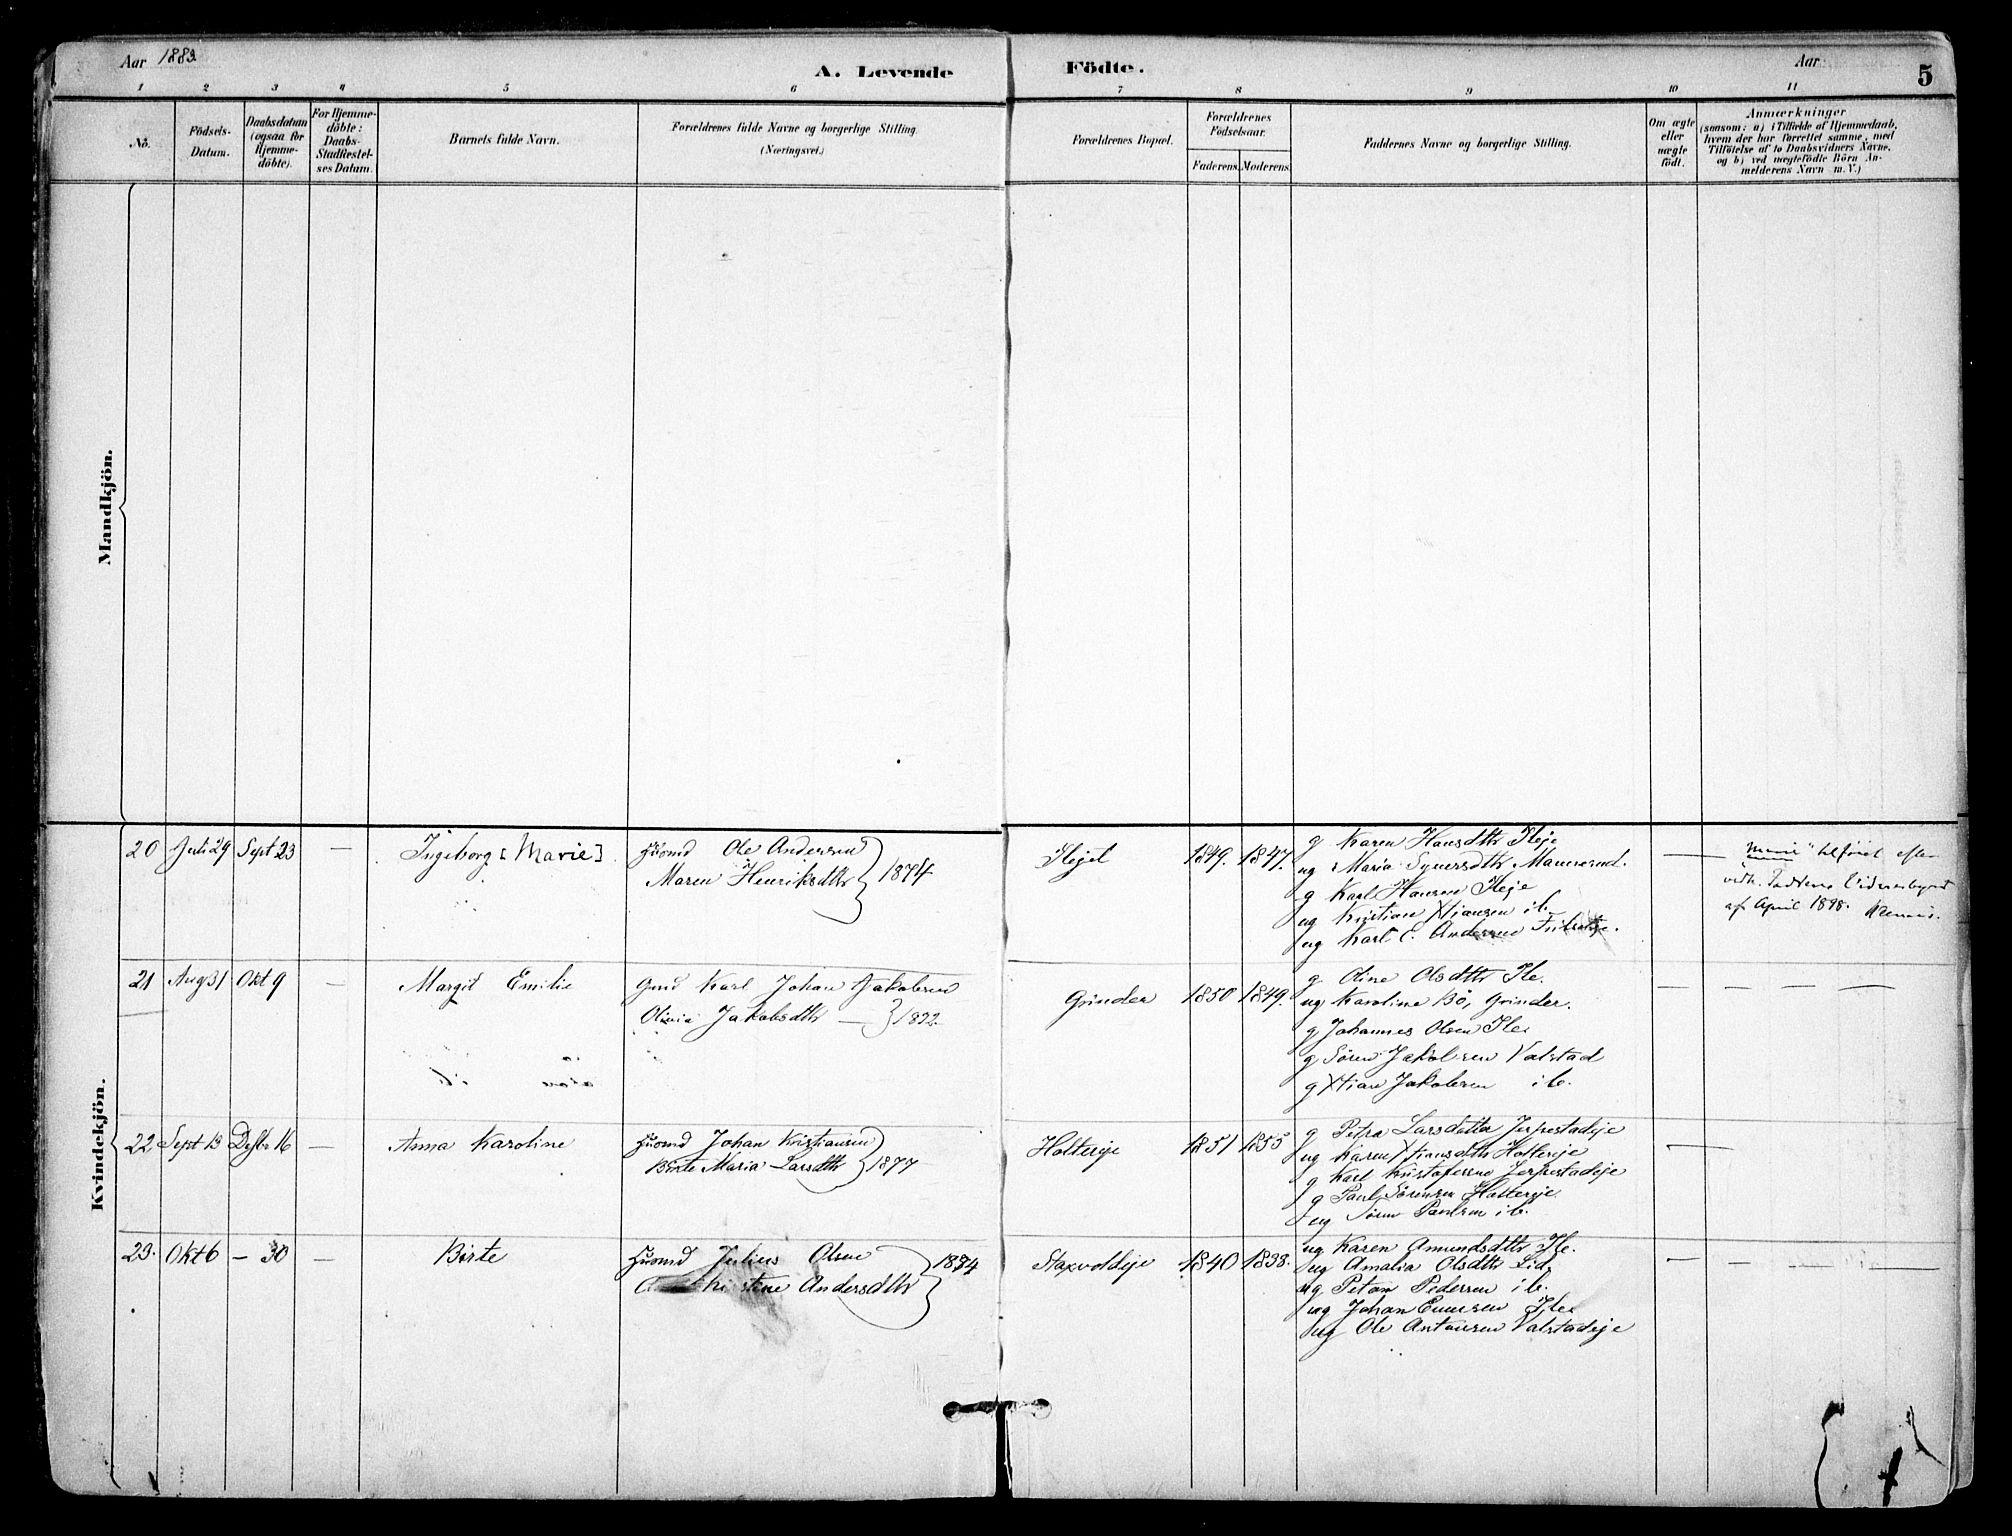 Aar 1883
A. Levende
Födte.
Aar
5
1 2 3 4 5 6 7 8 9 10 11
No.
Födsels-
Datum.
Daabsdatum
(ogsaa for
Hjemme-
döbte).
For Hjemme-
döbte:
Daabs-
Stadfestel-
ses Datum.
Barnets fulde Navn.
Forældrenes fulde Navne og borgerlige Stilling.
(Næringsvei.)
Forældrenes Bopæl.
Forældrenes
Födselsaar.
Faderens. Moderens.
Faddernes Navne og borgerlige Stilling.
Om ægte
eller
uægte
födt.
Anmærkninger
(saasom: a) i Tilfælde af Hjemmedaab,
hvem der har forrettet samme, med
Tilföielse af to Daabsvidners Navne,
og b) ved uægtefödte Börn An-
melderens Navn m. V.)
Mandkjön.
Kvindekjön.
20 Juli 29 Sept 23 — Ingeborg [Marie]
Husmd Ole Andersen
Maren Henriksdtr } 1874
Ileje 1849. 1847.
g Karen Hansdtr Ileje
ug Maria Syversdtr
g Karl Hansen Ileje
ug Kristian Hansen i b.
ug Karl E. Andersen
—
"Marie" tilföiet efter
af April 1898.
21 Aug 31 Okt 9 — Margit Emilie
Gmd Karl Johan Jakobsen
Olivia Jakobsdtr — }
Grinder 1850 1849.
g Oline Olsdtr Ile.
ug Karoline Bö, Grinder.
g Johannes Olsen Ile
g Sören Jakobsen Valstad
g Xtian Jakobsen i b.
— — — —
22 Sept 13 Dcbr 16 — Anna Karoline
Husmd Johan Kristiansen
Birte Maria Larsdtr } 1877
Holteeje 1851 1855
g Petra Larsdatter Jerpestadeje
ug Karen Hansdtr Holteeje
g Karl Kristofersen Jerpestadeje
g Paul Sörensen Holteeje
ug Sören Paulsen i b.
—
23. Okt 6 — 30 — Birte
Husmd Julius Olsen
Andersdtr } 1874
Staxvoldeje 1840 1838.
ug Karen Amundsdtr Ile.
ug Amalia Olsdtr Lid,
ug Petar Pedersen i b.
ug Johan Evensen Ile
ug Ole Antonsen Valstadeje
— — — —